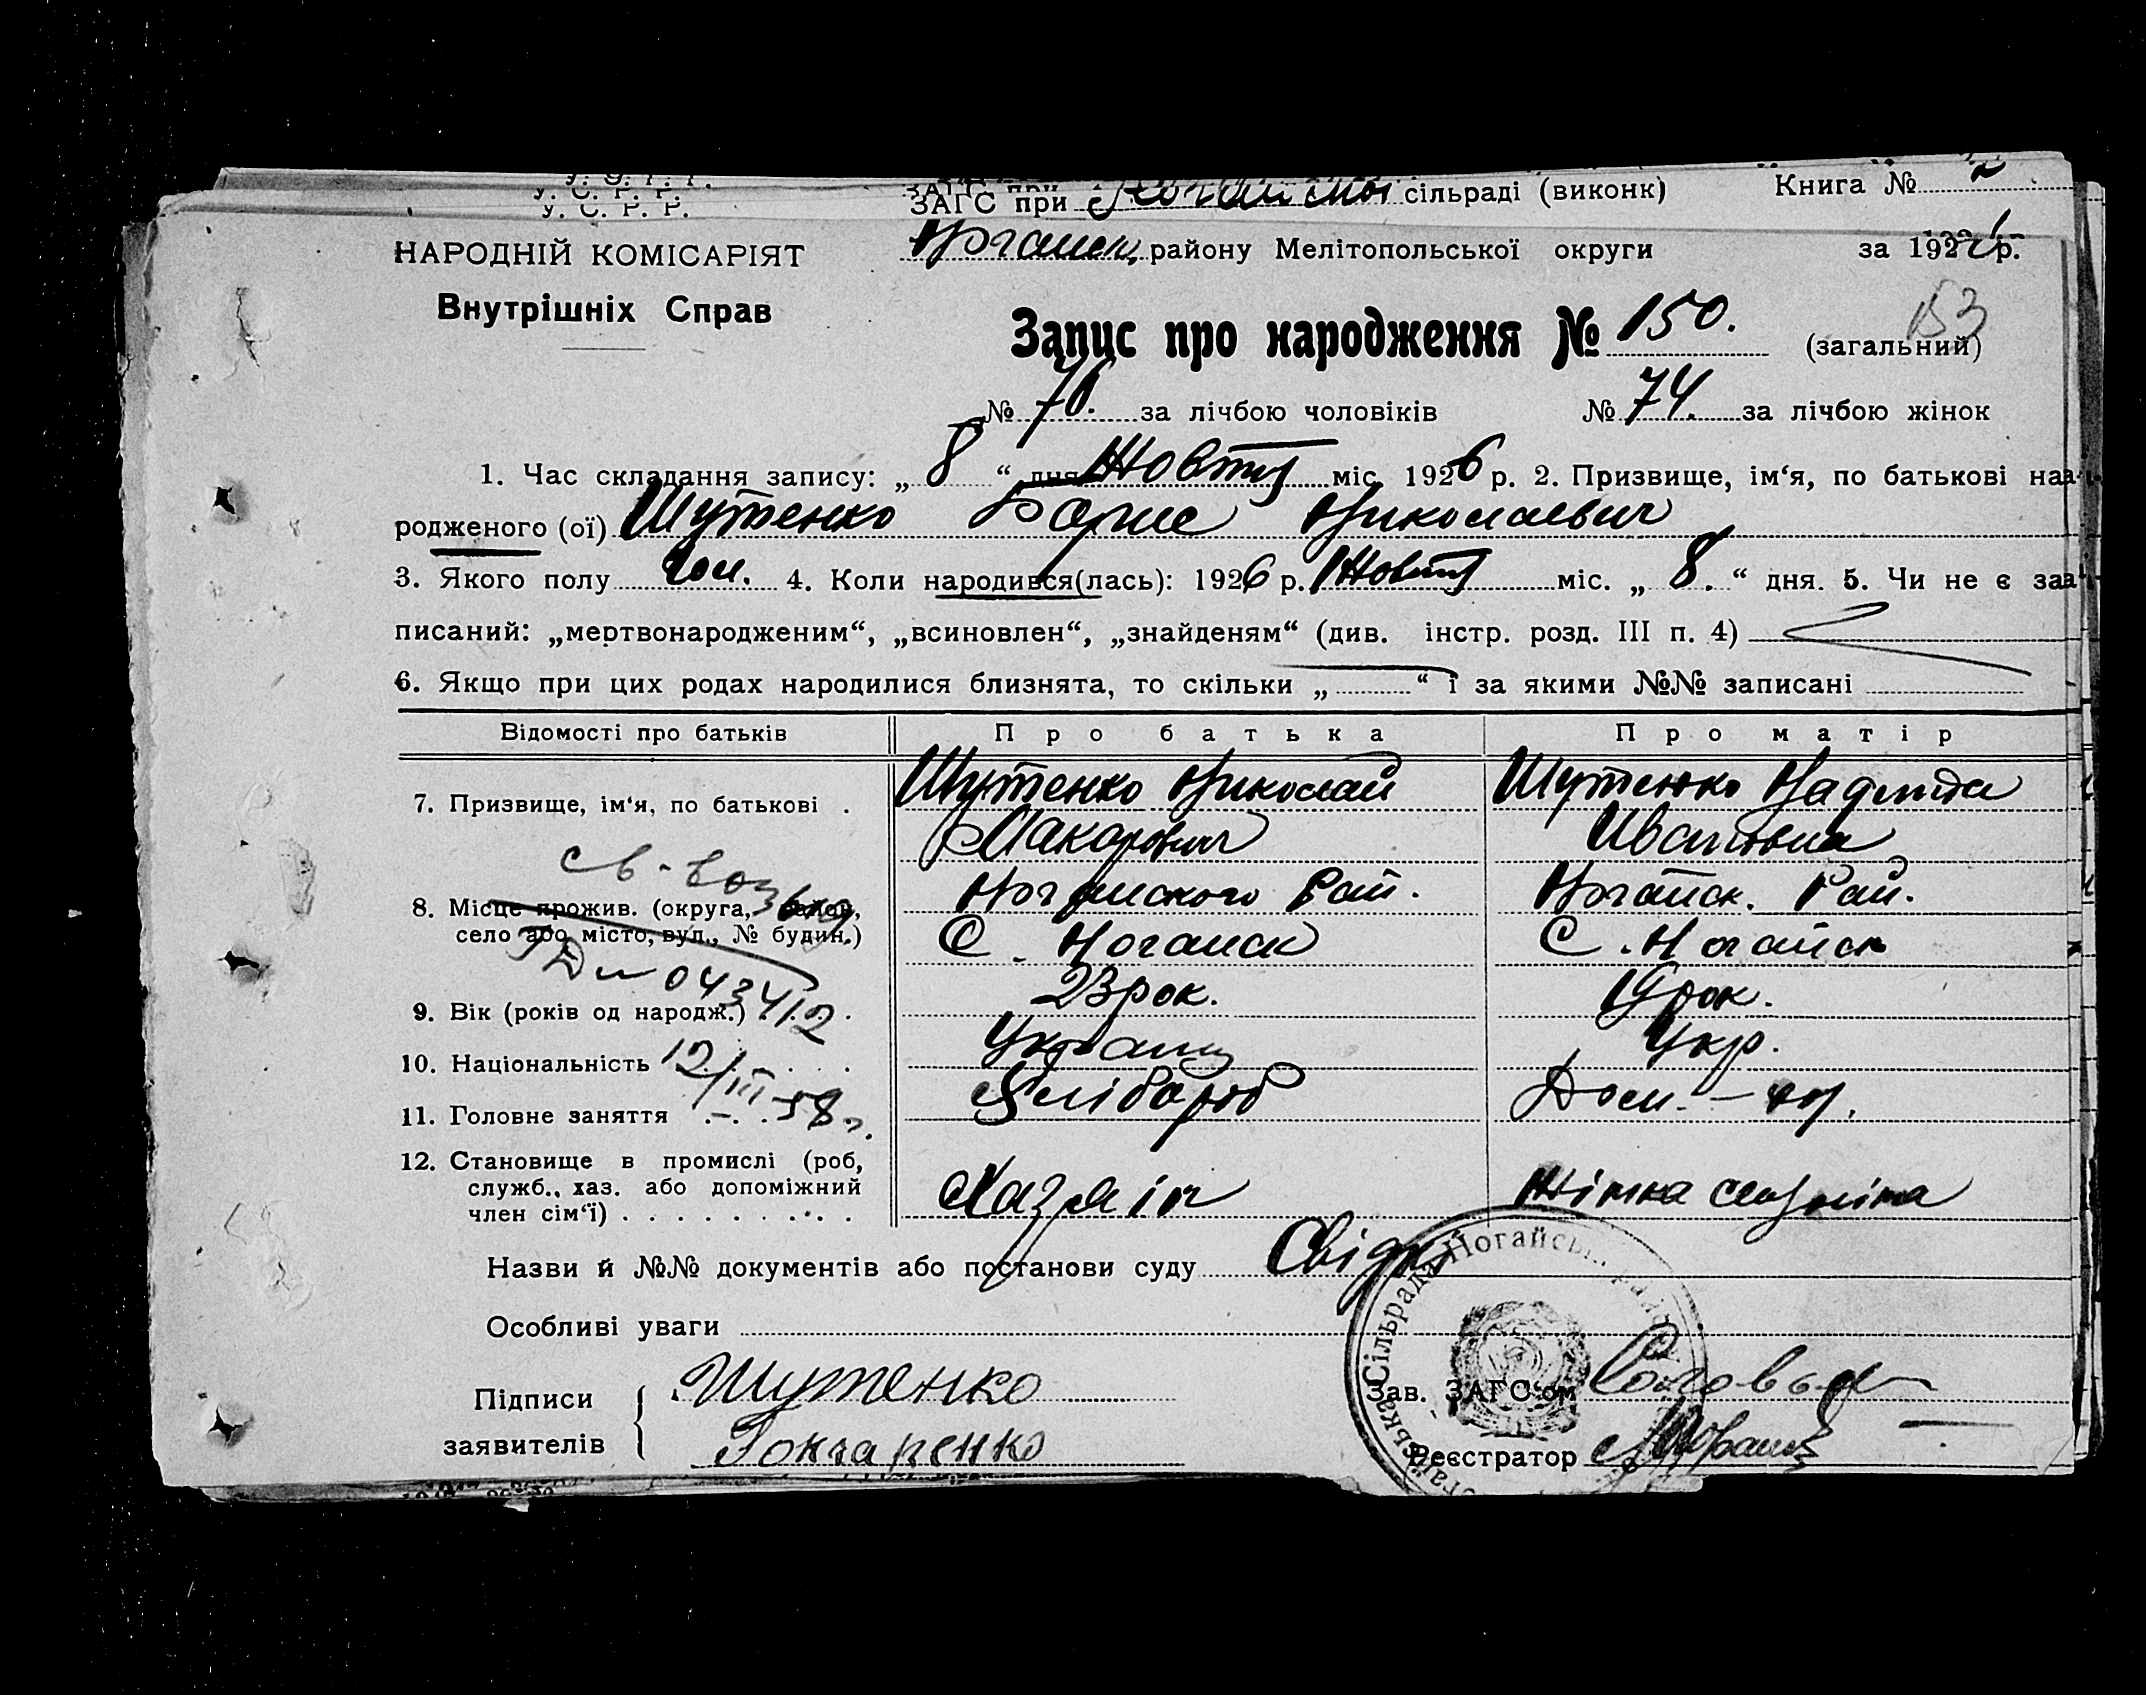 У. С. Р. Р.
ЗАГС при Ногайській сільраді (виконк) Книга № 2
НАРОДНІЙ КОМІСАРІЯТ
Ногайськ. району Мелітопольської округи за 1926 р.
Внутрішніх Справ
Запис про народження № 150. (загальний) 153
№ 76. за лічбою чоловіків № 74. за лічбою жінок
1. Час складання запису: „ 8 “ дня Жовтня міс. 1926 р. 2. Призвище, ім‘я, по батькові на-
родженого (ої) Шутенко Борис Николаевич
3. Якого полу чол. 4. Коли народився(лась): 1926 р. Жовтня міс. „ 8. “ дня. 5. Чи не є за-
писаний: „мертвонародженим“, „всиновлен“, „знайденям“ (див. інстр. розд. III п. 4)
6. Якщо при цих родах народилися близнята, то скільки „ “ і за якими №№ записані
Відомості про батьків Про батька Про матір
7. Призвище, ім‘я, по батькові . Шутенко Николай Шутенко Надежда
Макарович Ивановна
8. Місце прожив. (округа, район, Ногайского Рай. Ногайск. Рай.
село або місто, вул., № будин.) С. Ногайск С. Ногайск
043412
9. Вік (років од народж.) 23 рок. 19 рок.
10. Національність Українц Укр.
12/III-58 г.
11. Головне заняття Хлібороб Дом.
12. Становище в промислі (роб, служб., хаз. або допоміжний член сім‘ї) Хазяін Жінка хазяіна
Назви й №№ документів або постанови суду Свідки
Особливі уваги
Підписи Шутенко Зав. ЗАГС‘ом
заявителів Гончаренко Реєстратор
Сільрада Ногайськ.